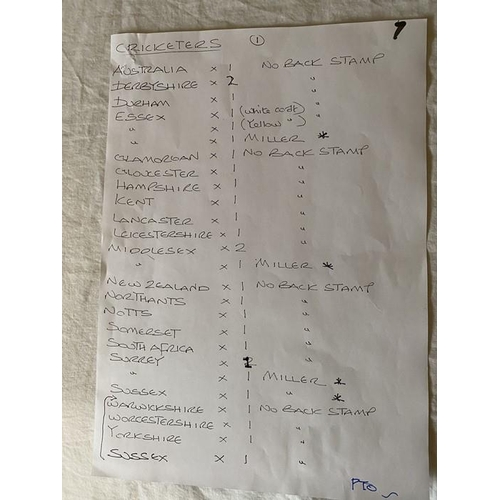 CRICKETERS ① 9
AUSTRALIA × 1 NO BACK STAMP
DERBYSHIRE × 2 "
DURHAM × 1 "
ESSEX × 1 (white card) "
" × 1 (Yellow ") "
" × 1 MILLER *
GLAMORGAN × 1 NO BACK STAMP
GLOUCESTER × 1 "
HAMPSHIRE × 1 "
KENT × 1 "
LANCASTER × 1 "
LEICESTERSHIRE × 1 "
MIDDLESEX × 2 "
" × 1 MILLER *
NEW ZEALAND × 1 NO BACK STAMP
NORTHANTS × 1 "
NOTTS × 1 "
SOMERSET × 1 "
SOUTH AFRICA × 1 "
SURREY × "
" × 1 MILLER *
SUSSEX × 1 " *
WARWICKSHIRE × 1 NO BACK STAMP
WORCESTERSHIRE × 1 "
YORKSHIRE × 1 "
SUSSEX × 1 "
PTO